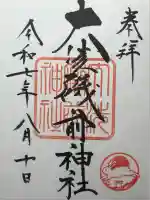 奉拝
大洗磯前神社
令和七年八月十日